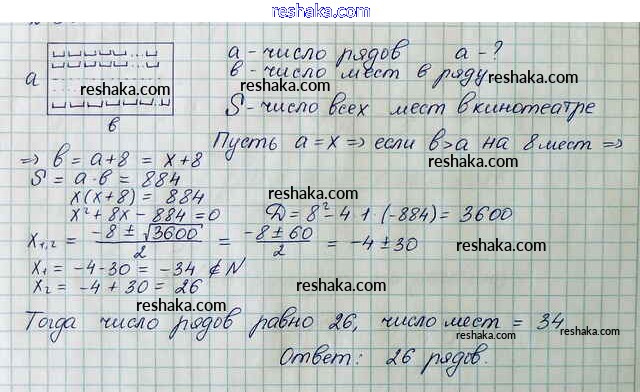 reshaka.com
a - число рядов a - ?
a в - число мест в ряду
reshaka.com
в S - число всех мест в кинотеатре
Пусть a = x ⇒ если в > a на 8 мест ⇒
⇒ в = a + 8 = x + 8
reshaka.com
S = a · в = 884
x(x + 8) = 884
reshaka.com
x² + 8x - 884 = 0 D = 8² - 4 · 1 · (-884) = 3600
x₁,₂ = (-8 ± √3600)/2 = (-8 ± 60)/2 = -4 ± 30
reshaka.com
x₁ = -4 - 30 = -34 ∉ N
reshaka.com
x₂ = -4 + 30 = 26
reshaka.com
Тогда число рядов равно 26, число мест = 34
reshaka.com
Ответ: 26 рядов.
reshaka.com
reshaka.com